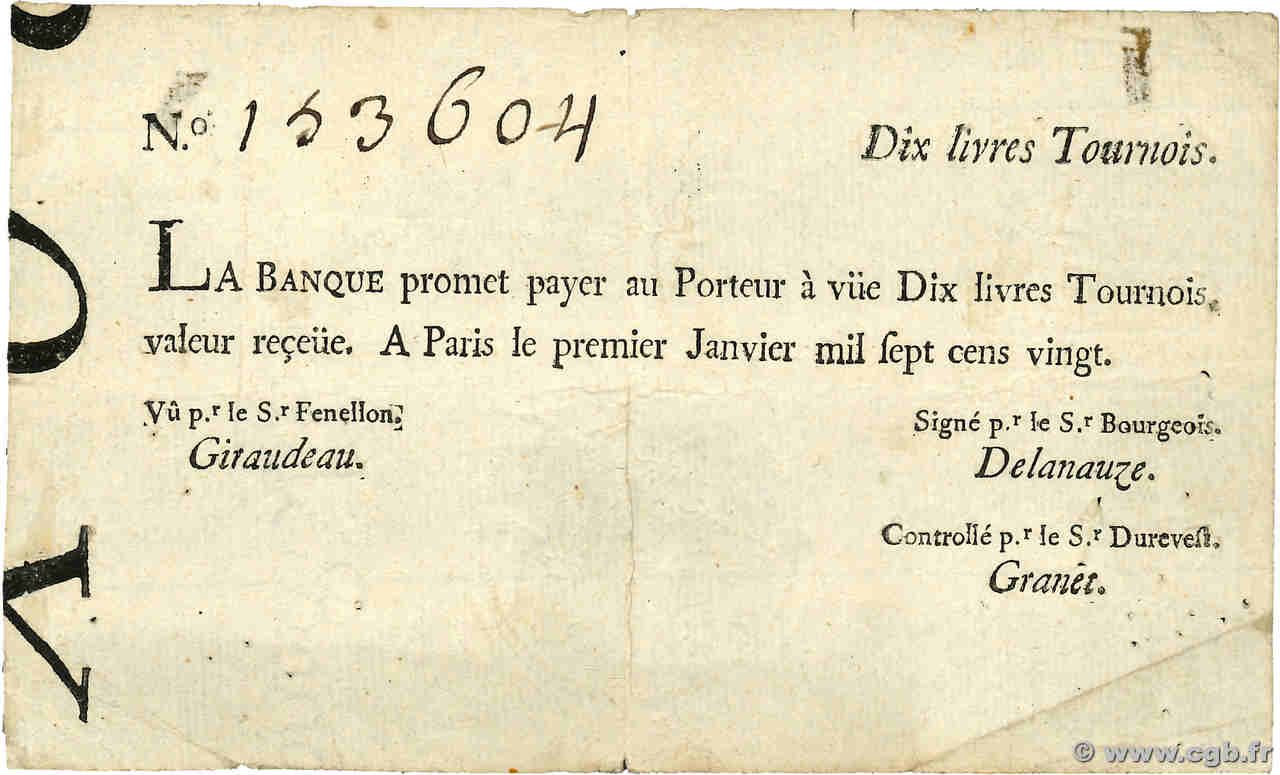 N.º 153604
Dix livres Tournois.
LA BANQUE promet payer au Porteur à vüe Dix livres Tournois,
valeur reçeüe. A Paris le premier Janvier mil ſept cens vingt.
Vû p.r le S.r Fenellon.
Giraudeau.
Signé p.r le S.r Bourgeois.
Delanauze.
Controllé p.r le S.r Dureveſt.
Granêt.
© www.cgb.fr